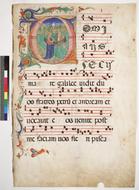 OMI
NUS
SECU
ma re galilee vidit du
os fratres petrum et andream et
vocavit eos venite post
me faciam vos fie ri pisca